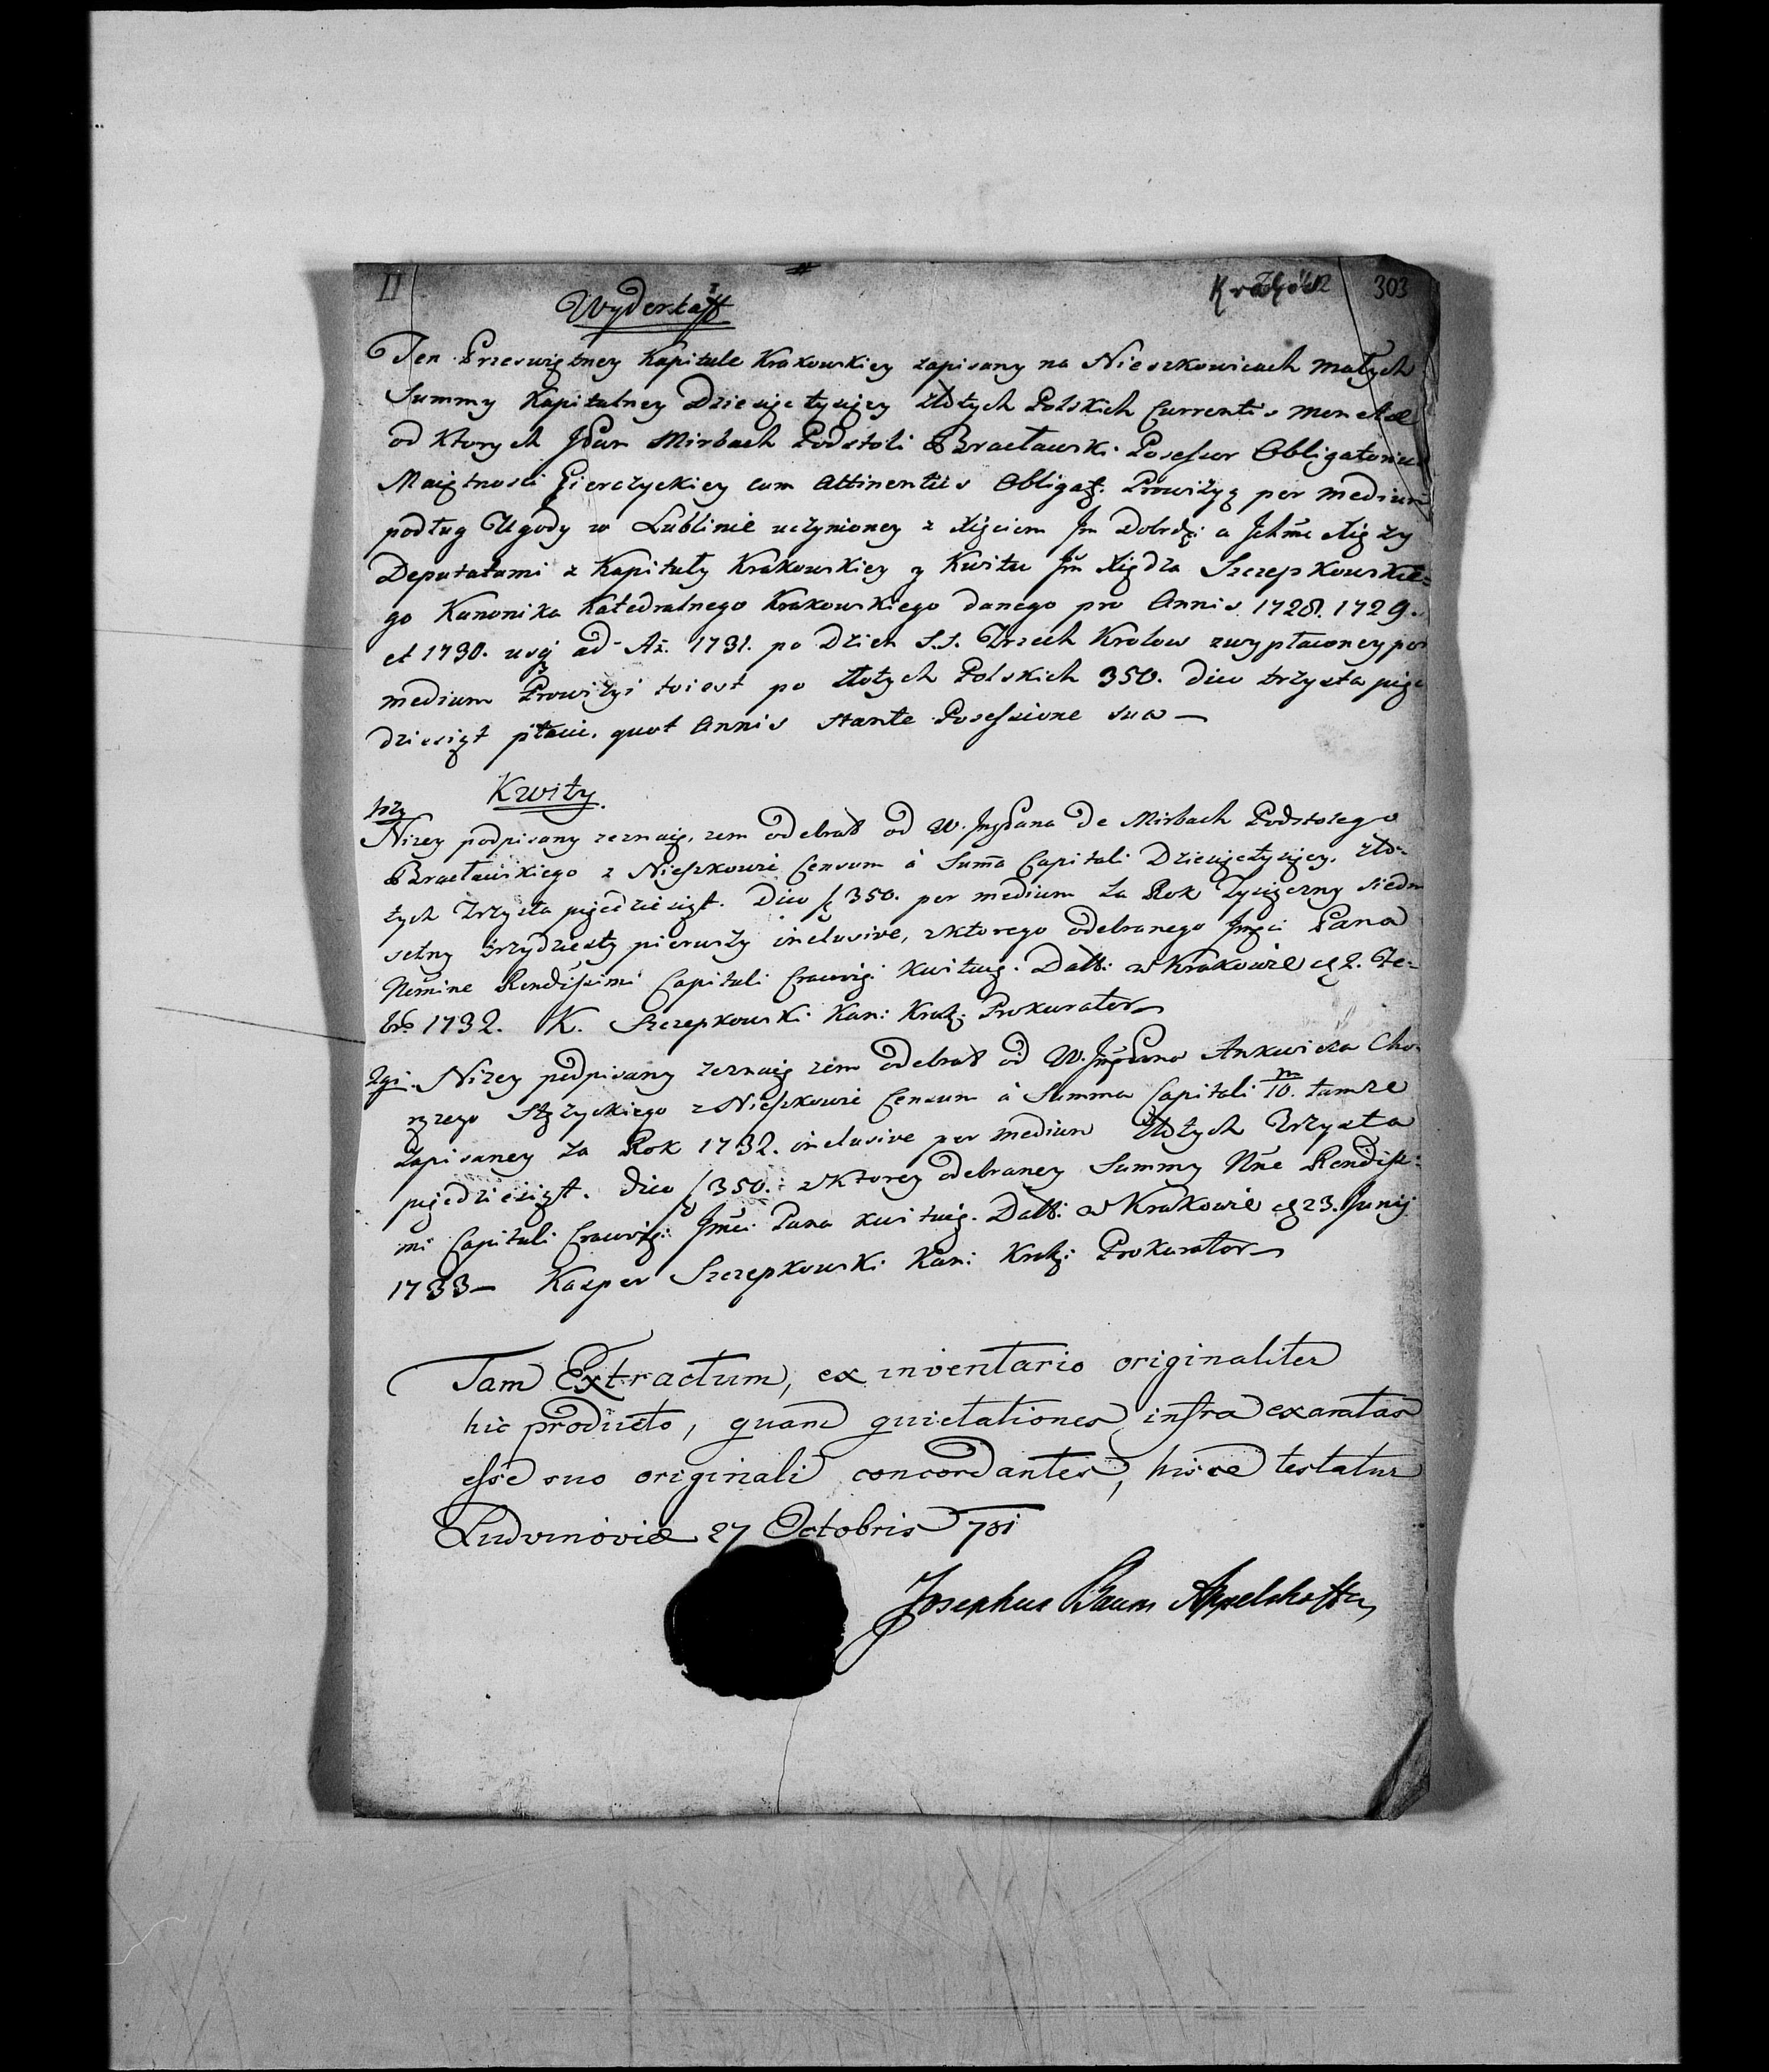 II
Kraków 303
Wyderkaff
Ten Przeswiętney Kapitule Krakowskiey zapisany na Nieszkowicach małych
Summy Kapitalney Dziesięćtysięcy złotych Polskich Currentis monetae
od ktorych JPan Mirbach Podstoli Bracławski Possessor Obligatorius
Maiętnosci Gierczyckiey cum Attinentiis Obligat: Prowizyą per medium
podług Ugody w Lublinie uczynioney z Xięciem Jm Dobrdz: a Jchmć Xięży
Deputatami z Kapituły Krakowskiey y Kwitu Jm Xiędza Szczepkowskie-
go Kanonika Katedralnego Krakowskiego danego pro Annis 1728. 1729.
et 1730. usq ad Aż. 1731. po Dzien S.S. Trzech Krolow zwypłaconey per
medium Prowizyi toiest po złotych Polskich 350. dico trzysta pięć
dziesiąt płaci, quot Annis stante Possessione sua —
Kwity.
1szy Nizey podpisany zeznaię, zem odebrał od W. JmPana De Mirbach Podstolego
Bracławskiego z Nieszkowic Censum à Summa Capitali Dziesięćtysięcy, zło-
tych Trzysta pięcdziesiąt. Dico f 350. per medium za Rok Tysiączny siedm
setny trzydziesty pierwszy inclusive, z ktorego odebranego Jmci Pana
Nomine Rendissimi Capituli Cracovi: kwituię. Datt: w Krakowie d 2. 7e-
bris 1732. K. Szczepkowski Kan: Krak: Prokurator
2gi. Nizey podpisany zeznaię zem odebrał od W. JmPana Ankwicza Cho-
rązego Stęzyckiego z Nieszkowic Censum à Summa Capitali 10/m. tamze
zapisaney za Rok 1732. inclusive per medium złotych Trzysta
pięcdziesiąt. dico f 350. z ktorey odebraney Summy Nñe Rendissi-
mi Capituli Cracovi: Jmci Pana kwituię. Datt: w Krakowie d 23. Junij
1733 — Kasper Szczepkowski Kan: Krak: Prokurator
Tam Extractum, ex inventario originaliter
hic producto, quam quietationes infra exaratas
esse suo originali concordantes, hisce testatur
Ludvinoviae 27 Octobris 781
Josephus Baum Appelshoffen